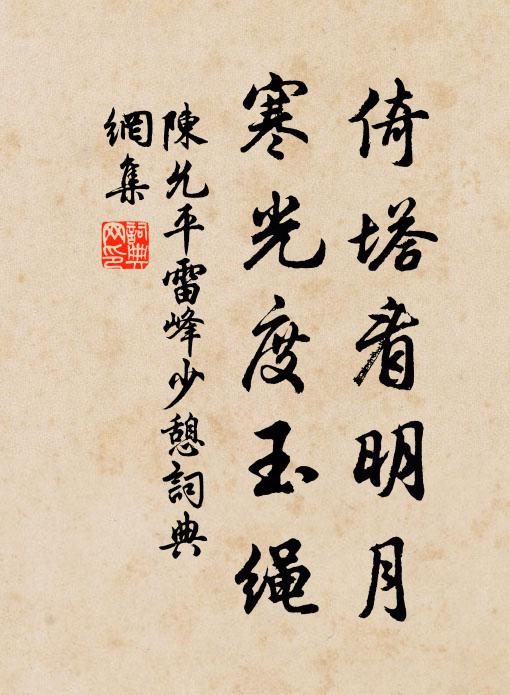 倚塔看明月
寒光度玉繩
陳允平雷峰少憩詞典
網集
詞典
网印